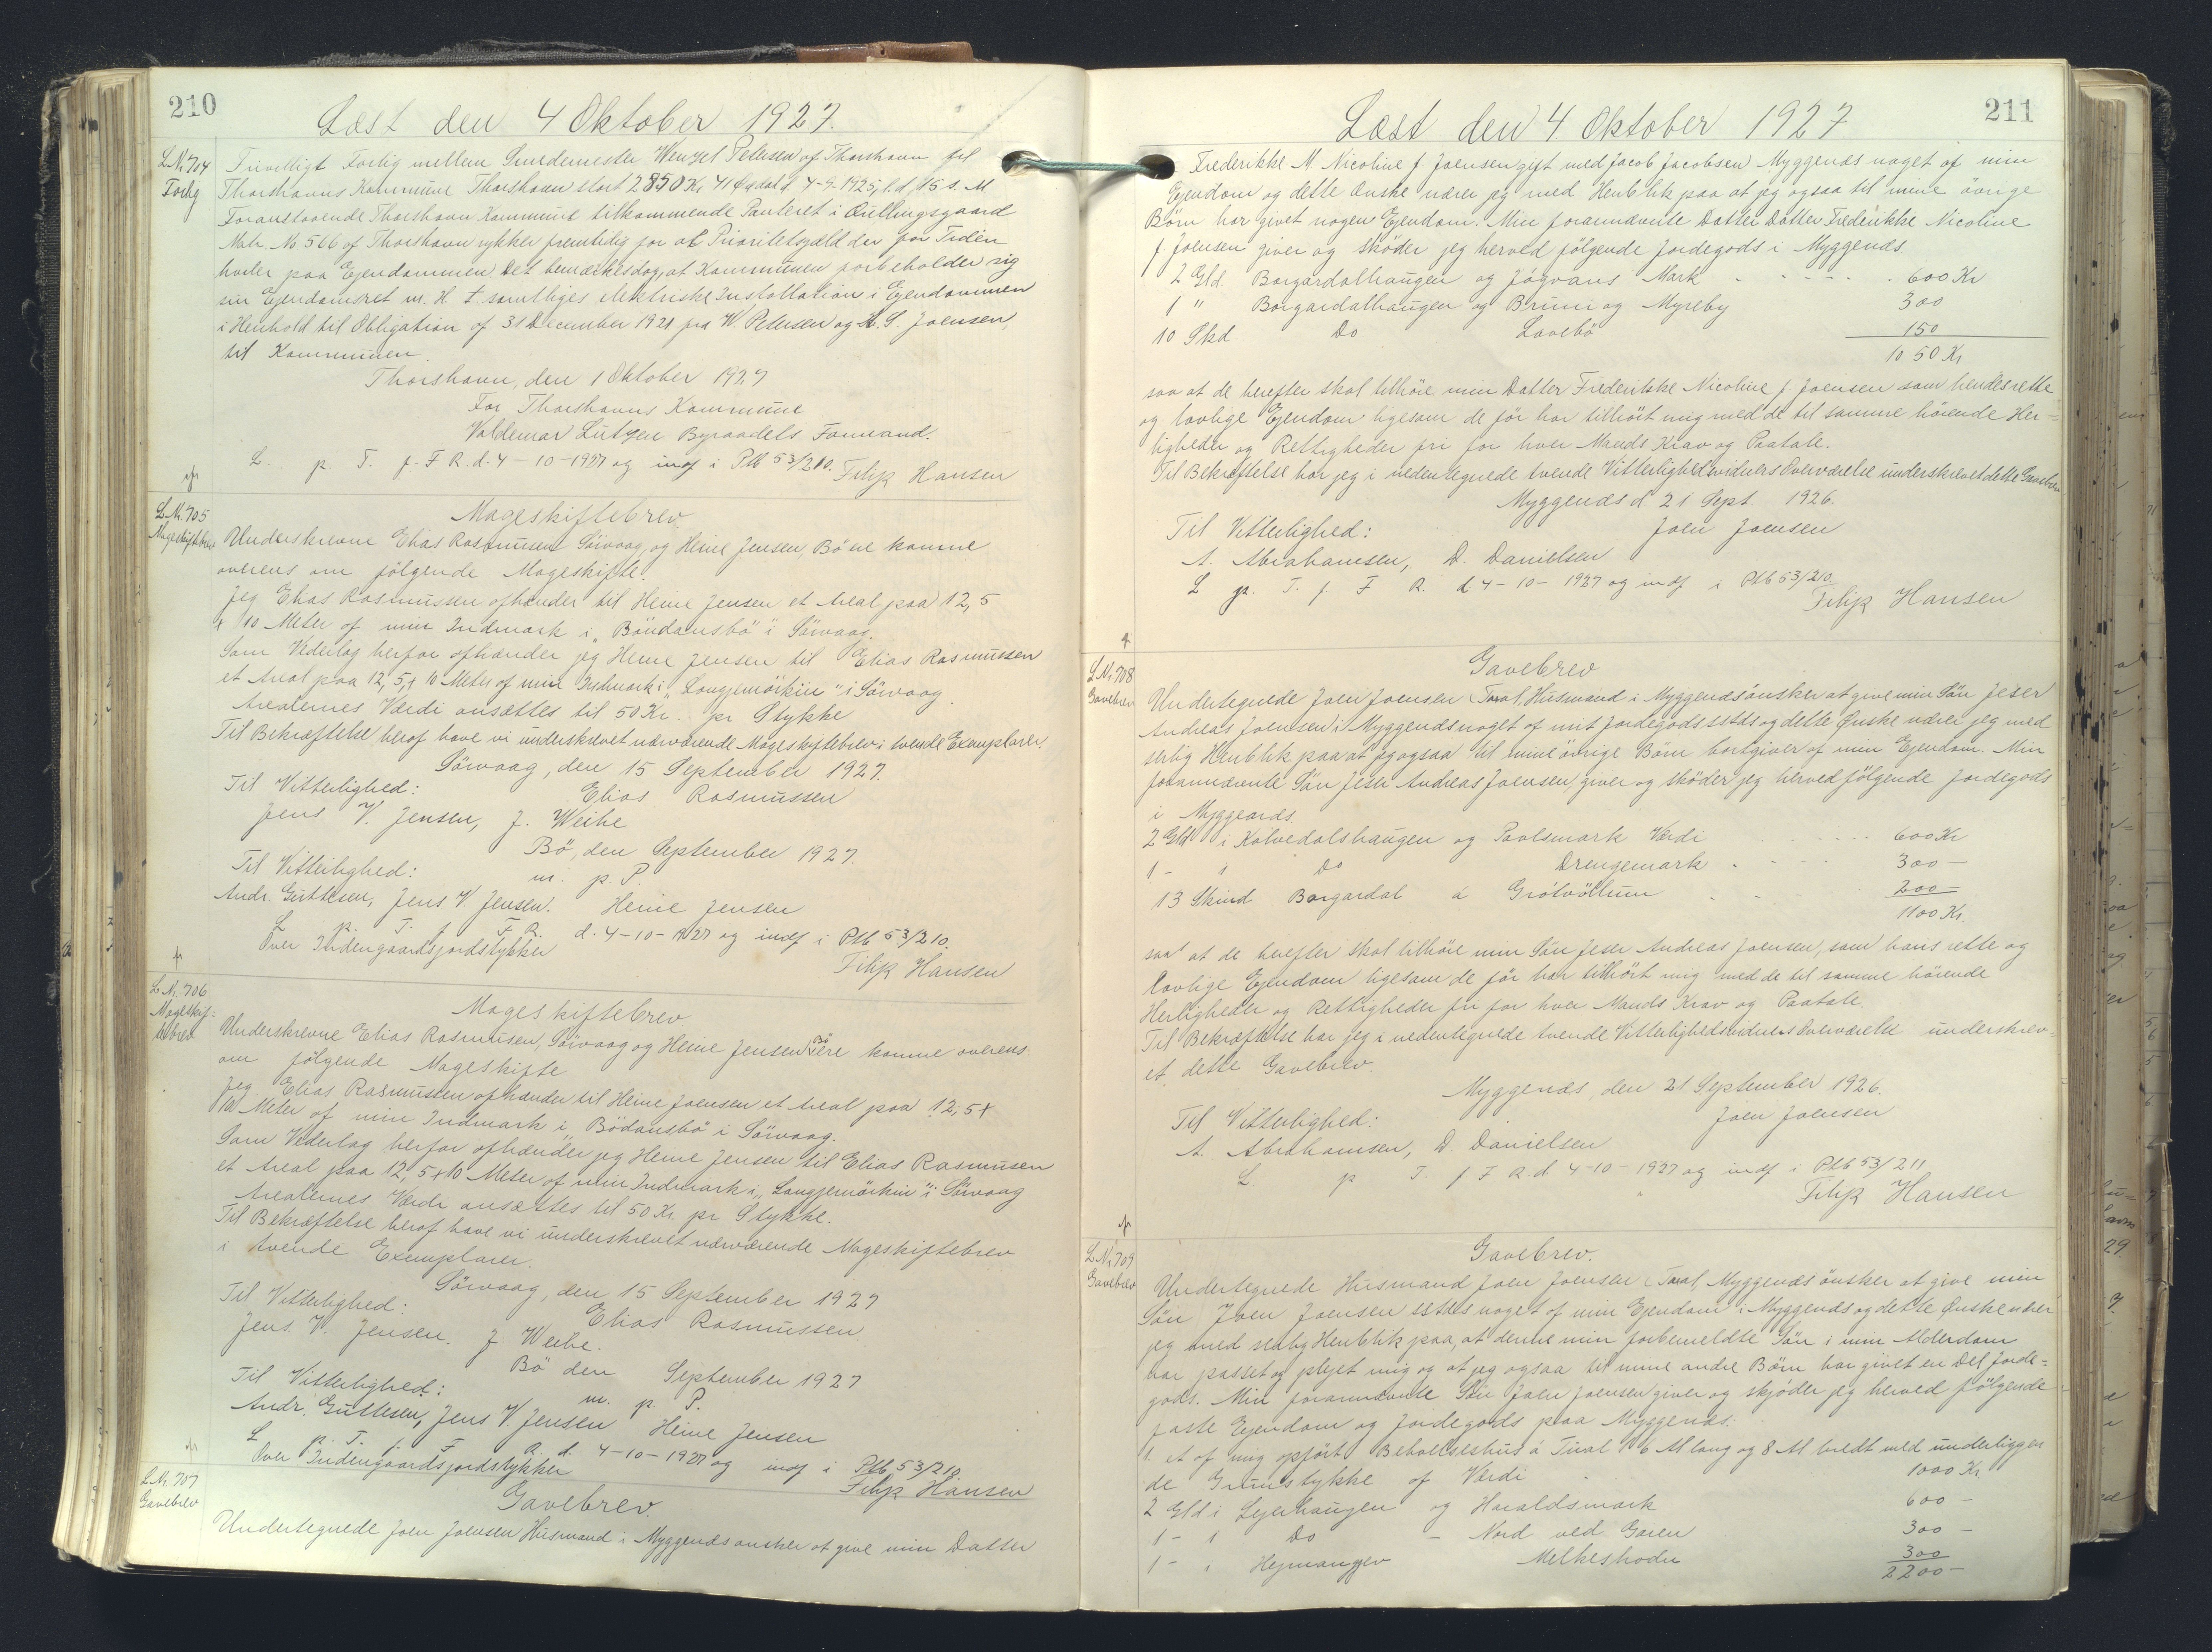 210
Læst den 4 Oktober 1927.
L.Nr. 704
Forlig
Frivilligt Forlig mellem Smedemester Wenzel Petersen af Thorshavn til
Thorshavns Kommune Thorshavn stort 2850 Kr 41 Øre dat d. 4-9-1925, l. d. 15 s. M
Foranstaaende Thorshavn Kommune tilkommende Panteret i Quillingsgaard
Matr. No 566 af Thorshavn rykker fremtidig for al Prioritetsgæld der for Tiden
hviler paa Ejendommen Det bemærkes dog, at Kommunen forbeholder sig
sin Ejendomsret m. H. t. samtliges elektriske Installation i Ejendommen
i Henhold til Obligation af 31 December 1921 fra W. Petersen og H. S. Joensen,
til Kommunen.
Thorshavn, den 1 Oktober 1927
For Thorshavns Kommune
Valdemar Lützen Byraadets Formand.
L. p. T. f. F R. d. 4-10-1927 og indf i Ptb 53/210.
Filip Hansen
L.Nr. 705
Mageskiftebrev
Mageskiftebrev.
Underskrevne Elias Rasmussen Sörvaag, og Heine Jensen, Bö ere komne
overens om följgende Mageskifte.
Jeg Elias Rasmussen afhænder til Heine Jensen et Areal paa 12,5
x 10 Meter af min Indmark i "Böudansbö" i Sörvaag.
Som Vederlag herfor afhænder jeg Heine Jensen til Elias Rasmussen
et Areal paa 12,5 x 10 Meter af min Indmark i "Longjemörkin" i Sörvaag
Arealernes Værdi ansættes til 50 Kr. pr Stykke
Til Bekræftelse heraf have vi underskrevet nærværende Mageskiftebrev i tvende Exemplarer.
Sörvaag, den 15 September 1927.
Til Vitterlighed:
Elias Rasmussen
Jens V. Jensen, J. Weihe
Bö, den September 1927.
Til Vitterlighed:
m. p. P.
Andr. Guttesen, Jens V. Jensen. Heine Jensen
L. p. T. f. F. R. d. 4-10-1927 og indf i Ptb 53/210.
Over Indengaardsjordstykker
Filip Hansen
L.Nr. 706
Mageskif-
tebrev
Mageskiftebrev
Underskrevne Elias Rasmussen, Sörvaag og Heine Jensen Bö ere komne overens
om følgende Mageskifte
Jeg Elias Rasmussen afhænder til Heine Joensen et Areal paa 12,5 x
10 Meter af min Indmark i "Bödansbö" i Sörvaag.
Som Vederlag herfor afhænder jeg Heine Jensen til Elias Rasmusen
et Areal paa 12,5 x 10 Meter af min Indmark i "Longjemörkin" i Sörvaag
Arealernes Værdi ansættes til 50 Kr. pr Stykke.
Til Bekræftelse heraf have vi underskrevet nærværende Mageskiftebrev
i tvende Exemplarer.
Sörvaag, den 15 September 1927
Til Vitterlighed:
Elias Rasmussen
Jens V. Jensen. J Weihe.
Bö den September 1927
Til Vitterlighed:
m. p. P.
Andr. Guttesen, Jens V. Jensen Heine Jensen
L p. T. f. F R. d. 4-10-1927 og indf i Ptb 53/210.
Over Indengaardsjordstykker
Filip Hansen
L.Nr. 707
Gavebrev
Gavebrev.
Undertegnede Joen Joensen Husmand i Myggenæs ønsker at give min Datter
211
Læst den 4 Oktober 1927
Frederikke M. Nicoline f Joensen gift med Jacob Jacobsen Myggenæs noget af min
Ejendom og dette Ønske nærer jeg med Henblik paa at jeg ogsaa til mine övrige
Börn har givet nogen Ejendom. Min forannævnte Datter Datter Frederikke Nicoline
f Joensen giver og sköder jeg herved fölgende Jordegods i Myggenæs.
2 Gld. Borgardalhaugen og Jógvans Mark 600 Kr
1 " Borgardalhaugen og Bruni og Myreby 300
10 Skd Do Lavebö 150
1050 Kr
saa at de herefter skal tilhöre min Datter Frederikke Nicoline f Joensen som hendes rette
og lovlige Ejendom ligesom de för har tilhört mig med de til samme hörende Her-
ligheder og Rettigheder fri for hver Mands Krav og Paatale.
Til Bekræftelse har jeg i nedentegnede tvende Vitterlighedsvidners Overværelse underskrevet dette Gavebrev
Myggenæs d 21 Sept 1926.
Til Vitterlighed:
Joen Joensen
A. Abrahamsen, D. Danielsen
L p. T. f F R. d 4-10-1927 og indf i Ptb 53/210.
Filip Hansen
L.Nr. 708
Gavebrev
Gavebrev
Undertegnede Joen Joensen Husmand i Myggenæs önsker at give min Sön Jeser
Andreas Joensen i Myggenæs noget af mit Jordegods sstds og dette Ønske nærer jeg med
særlig Henblik paa at jeg ogsaa til mine övrige Börn bortgiver af min Ejendom. Min
forannævnte Sön Jeser Andreas Joensen giver og sköder jeg herved fölgende Jordegods
i Myggenæs
2 Gld i Kalvedalshaugen og Paalsmark Værdi 600 Kr
1 - " Do Drengemark 300 -
13 Skind Borgardal á Grótvöllum 200 -
1100 Kr.
saa at de herefter skal tilhöre min Sön Jeser Andreas Joensen, som hans rette og
lovlige Ejendom ligesom de för har tilhört mig med de til samme hörende
Herligheder og Rettigheder fri for hver Mands Krav og Paatale.
Til Bekræftelse har jeg i nedentegnede tvende Vitterlighedsvidners Overværelse underskrev-
et dette Gavebrev.
Myggenæs, den 21 September 1926.
Til Vitterlighed:
Joen Joensen
A. Abrahamsen, D Danielsen
L. p T. f F R. d 4-10-1927 og indf i Ptb 53/211
Filip Hansen
L.Nr. 709
Gavebrev
Gavebrev.
Undertegnede Husmand Joen Joensen Myggenæs önsker at give min
Sön Joen Joensen sstds noget af min Ejendom i Myggenæs og dette Ønske nærer
jeg med særlig Henblik paa, at denne min forbemeldte Sön i min Alderdom
har passet og plejet mig og at jeg ogsaa til mine andre Börn har givet en Del Jorde-
gods. Min forannævnte Sön Joen Joensen giver og skjöder jeg herved fölgende
faste Ejendom og Jordegods paa Myggenæs.
1. et af mig opfört Beboelseshus á Tival 16 Al lang og 8 Al bredt med underliggen
de Grundstykke af Værdi 1000 Kr
2 Gld i Lejerhaugen og Haraldsmark 600 -
1 - " Do - Nord ved Garen 300 -
1 - " Hejmangjev Melkeskodn 300
2200 -